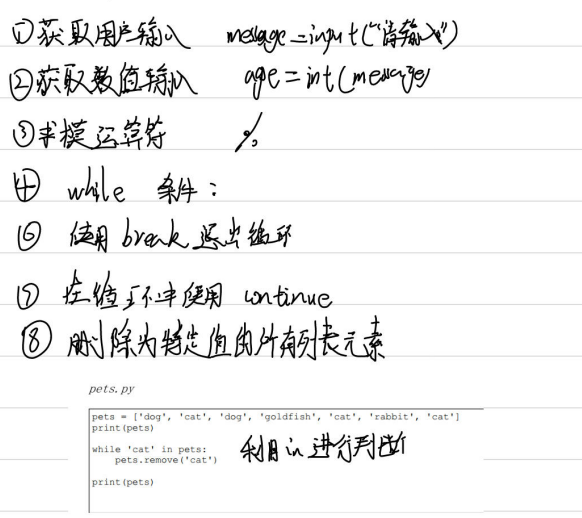 ①获取用户输入 message=input("请输入")
②获取数值输入 age=int(message)
③求模运算符 %
④ while 条件：
⑥ 使用break退出循环
⑦ 在循环中使用 continue
⑧ 删除为特定值的所有列表元素
pets.py
pets = ['dog', 'cat', 'dog', 'goldfish', 'cat', 'rabbit', 'cat']
print(pets)
while 'cat' in pets:
    pets.remove('cat') 利用in进行判断
print(pets)